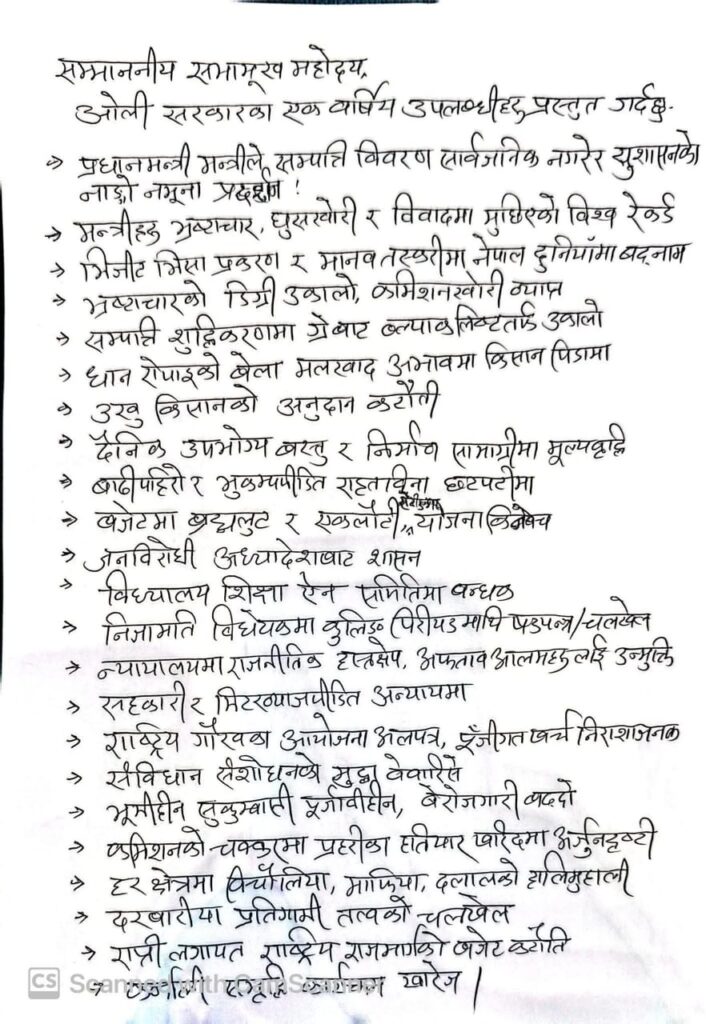 सम्माननीय सभामूख महोदय,
ओली सरकारका एक वार्षिय उपलब्धीहरु प्रस्तुत गर्दछु.
→ प्रधानमन्त्री मन्त्रीले सम्पात्ति विवरण सार्वजनिक नगरेर सुशासनको
नाङ्गो नमूना प्रदर्शन !
→ मन्त्रीहरु भ्रष्टाचार, घुसखोरी र विवादमा मुछिएको विश्व रेकर्ड
→ भिजीट भिसा प्रकरण र मानव तस्करीमा नेपाल दुनियाँमा बदनाम
→ भ्रष्टाचारको डिग्री उकालो, कमिशनखोरी व्याप्त
→ सम्पात्ति शुद्धिकरणमा ग्रेबाट ब्ल्याकलिष्टतर्फ उकालो
→ धान रोपाइको बेला मलखाद अभावमा किसान पिडामा
→ उखु किसानको अनुदान कटौती
→ दैनिक उपभोग्य वस्तु र निर्माण सामाग्रीमा मूल्यवृद्धि
→ बाढीपाहिरो र भुकम्पपीडित राहतविना छटपटीमा
→ बजेटमा ब्रह्मलुट र एकलौटी योजना
→ जनविरोधी अध्यादेशबाट शासन
→ विध्यालय शिक्षा ऐन समितिमा बन्धक
→ निजामति विधेयकमा कुलिङ्ग पिरीयड माथि षडयन्त्र/चलखेल
→ न्यायालयमा राजनीतिक हस्तक्षेप, अफताव आलमहरुलाई उन्मुक्ति
→ सहकारी र मिटरब्याजपीडित अन्यायमा
→ राष्ट्रिय गौरवका आयोजना अलपत्र, पूँजीगत खर्च निराशाजनक
→ संविधान संशोधनको मुद्धा वेवारिसे
→ भूमीहीन सुकुम्वासी पूर्जाविहीन, बेरोजगारी बढदो
→ कमिशनको चक्करमा प्रहरीका हतियार खरिदमा अर्जुनदृष्टी
→ हर क्षेत्रमा विचौलिया, माफिया, दलालको हालिमुहाली
→ दरबारीया प्रतिगामी तत्वको चलखेल
→ राप्ती लगायत राष्ट्रिय राजमार्गको बजेट कटौति
→ खारेज |
CS Scanned with CamScanner